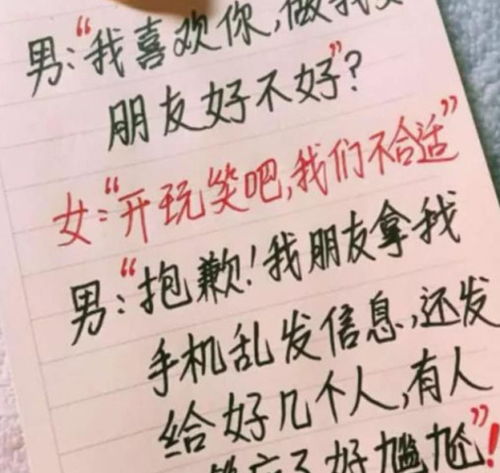 男:“我喜欢你,做我女
朋友好不好”?
女:“开玩笑吧,我们不合适”
男:“抱歉!我朋友拿我
手机乱发信息,还发
给好几个人,有人
答应了好尴尬”!